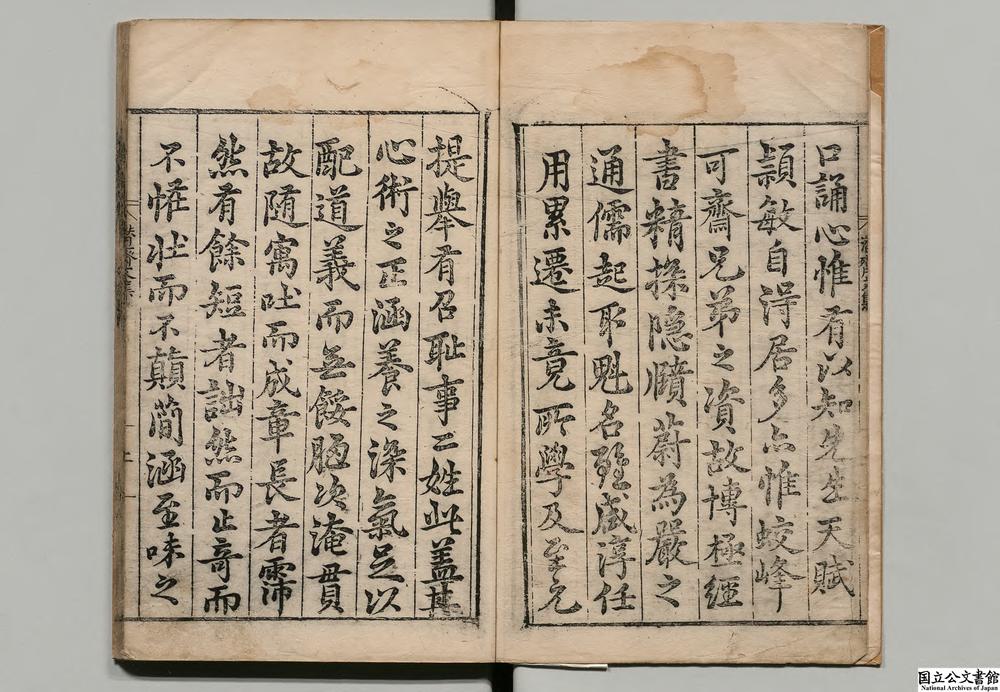 口誦心惟有以知先生天賦
穎敏自淂居多亦惟蛟峰
可齋兄弟之資故博極經
書精探隠賾蔚為嚴之
通儒起取魁名歷咸淳任
用累遷未竟所學及至元
提舉有召耻事二姓此盖其
心術之正涵養之深氣足以
配道義而無餒胸次淹貫
故随寓吐而成章長者霈
然有餘短者詘然而止奇而
不恠壮而不顛簡涵至味之
国立公文書館
National Archives of Japan